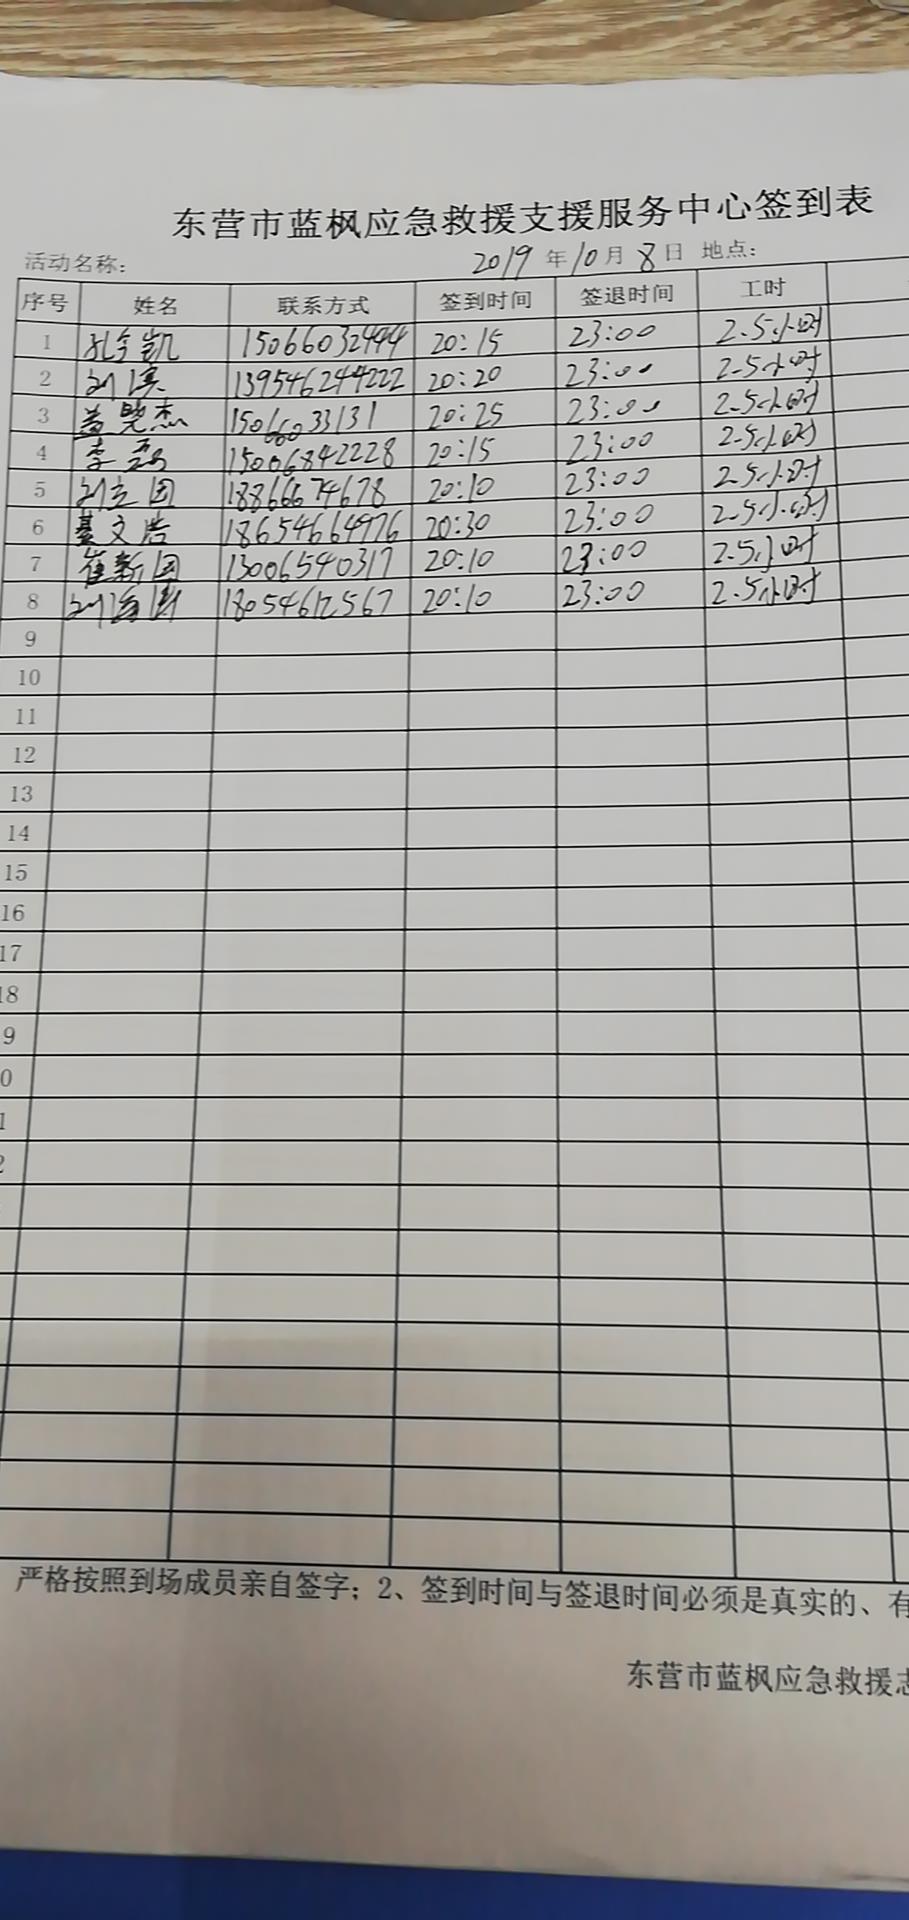 东营市蓝枫应急救援支援服务中心签到表
活动名称: 2019年10月8日 地点:
序号 姓名 联系方式 签到时间 签退时间 工时
1 孔令凯 15066032494 20:15 23:00 2.5小时
2 刘滨 139546244222 20:20 23:00 2.5小时
3 盖晓杰 15066033131 20:25 23:00 2.5小时
4 李磊 15006842228 20:15 23:00 2.5小时
5 刘立国 18866674678 20:10 23:00 2.5小时
6 綦文浩 18654664976 20:30 23:00 2.5小时
7 崔新国 13006540317 20:10 23:00 2.5小时
8 刘海 18054612567 20:10 23:00 2.5小时
9
10
11
12
13
14
15
16
17
18
9
0
1
2
严格按照到场成员亲自签字；2、签到时间与签退时间必须是真实的、有
东营市蓝枫应急救援志